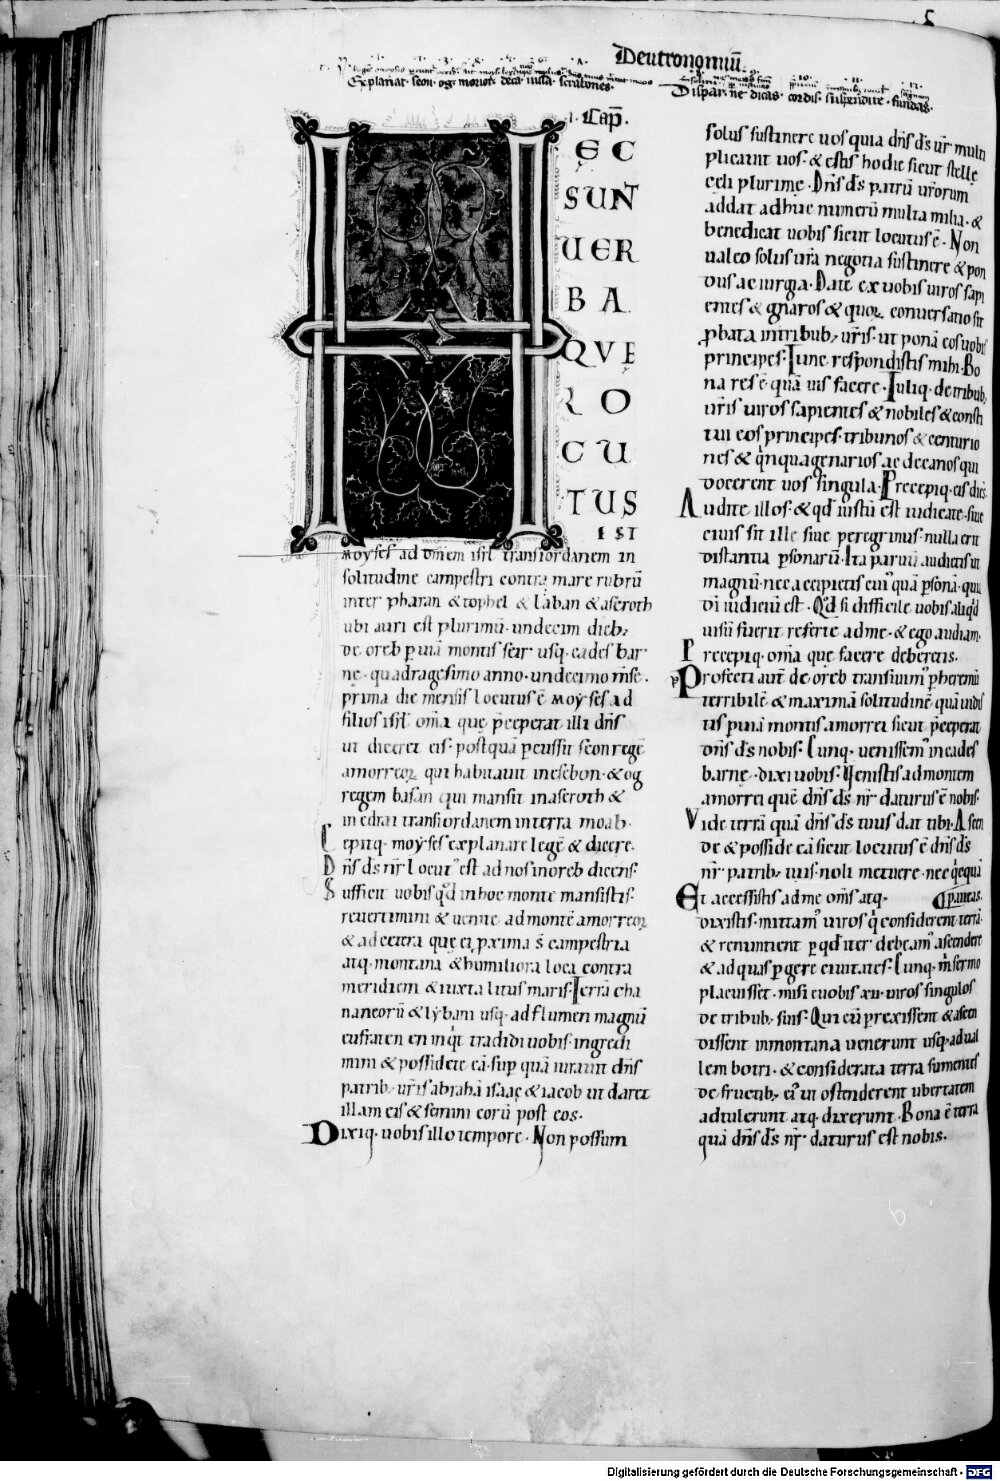 Deutronomiū
Explanat· seon· og· moriot· deca· iussa·
Dispar· ne dicas· cordis· suspendite· fundas·
I· Cap̄·
H
ĘC
SUNT
UER
BA
QVE
LO
CU
TUS
EST
moyses ad om̄em isr̄l transiordanem in
solitudine campestri contra mare rubrū
inter pharan & tophel & laban & aseroth
ubi auri est plurimū· undecim dieb;
de oreb p uiā montis seir usq; cades bar
ne· quadragesimo anno· undecimo m̄se·
prima die mensis locutus ē moyses ad
filios isr̄l om̄a que p̄ceperat illi dn̄s
ut diceret eis· postquā pcussit seon regē
amorreoꝝ qui habitauit in esebon· & og
regem basan qui mansit in aseroth &
in edrai transiordanem in terra moab·
Cepitq; moyses explanare legē & dicere·
Dn̄s ds̄ nr̄ locut᷒ est ad nos in oreb dicens·
Sufficit uobis qd̄ in hoc monte mansistis·
reuertimini & uenite ad montē amorreoꝝ
& ad cetera que ei pxima s̄ campestria
atq; montana & humiliora loca contra
meridiem & iuxta litus maris· Terrā cha
naneorū & lybani usq; ad flumen magnū
eufraten en inqt tradidi uobis· ingredi
mini & possidete eā· sup quā iurauit dn̄s
patrib; ur̄is abrahā isaac & iacob ut daret
illam eis & semini eorū post eos·
Dixiq; uobis illo tempore· Non possum
solus sustinere uos quia dn̄s ds̄ ur̄ multi
plicauit uos· & estis hodie sicut stelle
celi plurime· Dn̄s ds̄ patrū ur̄orum
addat ad hunc numerū multa milia· &
benedicat uobis sicut locutus ē· Non
ualeo solus ur̄a negotia sustinere & pon
dus ac iurgia· Date ex uobis uiros sapi
entes & gnaros & quoꝝ conuersatio sit
pbata in tribub; ur̄is· ut ponā eos uobis
principes· Tunc respondistis mihi· Bo
na res ē quā uis facere· Tuliq; de tribub;
ur̄is uiros sapientes & nobiles & consti
tui eos principes· tribunos & centurio
nes & qnquagenarios ac decanos qui
docerent uos singula· Precepiq; eis dic̄s·
Audite illos· & qd̄ iustū est iudicate· siue
ciuis sit ille siue peregrinus· nulla erit
distantia psonarū· Ita paruū audietis ut
magnū· nec accipietis cuiq̄ psonā· quia
di iudiciū est· Qd̄ si difficile uobis aliqd̄
uisū fuerit referte ad me· & ego audiam·
Precepiq; om̄a que facere deberetis·
Profecti aut̄ de oreb transiuim᷒ p heremū
terribilē & maximā solitudinē quā uidis
tis p uiā montis amorrei sicut p̄ceperat
dn̄s ds̄ nobis· Cunq; uenissem᷒ in cades
barne· dixi uobis· Venistis ad montem
amorrei quē dn̄s ds̄ nr̄ daturus ē nobis·
Vide terrā quā dn̄s ds̄ tuus dat tibi· Ascen
de & posside eā sicut locutus ē dn̄s ds̄
nr̄ patrib; tuis· noli metuere· nec qcquā
paueas·
Et accessistis ad me om̄s atq;
dixistis· mittam᷒ uiros q̄ considerent terrā·
& renuntient p qd̄ iter debeam᷒ ascendere
& ad quas pgere ciuitates· Cunq; m̄ sermo
placuisset· misi e uobis xii· uiros singulos
de tribub; suis· Qui cū prexissent & ascen
dissent in montana uenerunt usq; ad ual
lem botri· & considerata terra sumentes
de fructib; ei᷒ ut ostenderent ubertatem
adtulerunt atq; dixerunt· Bona ē terra
quā dn̄s ds̄ nr̄ daturus est nobis·
Digitalisierung gefördert durch die Deutsche Forschungsgemeinschaft - DFG